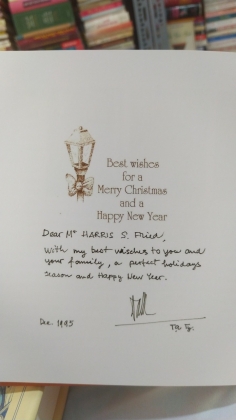 Best wishes
for a
Merry Christmas
and a
Happy New Year
Dear Mr HARRIS S. Fried,
With my best wisches to you and
your family, a perfect holidays
season and Happy New Year.
Dec. 1995